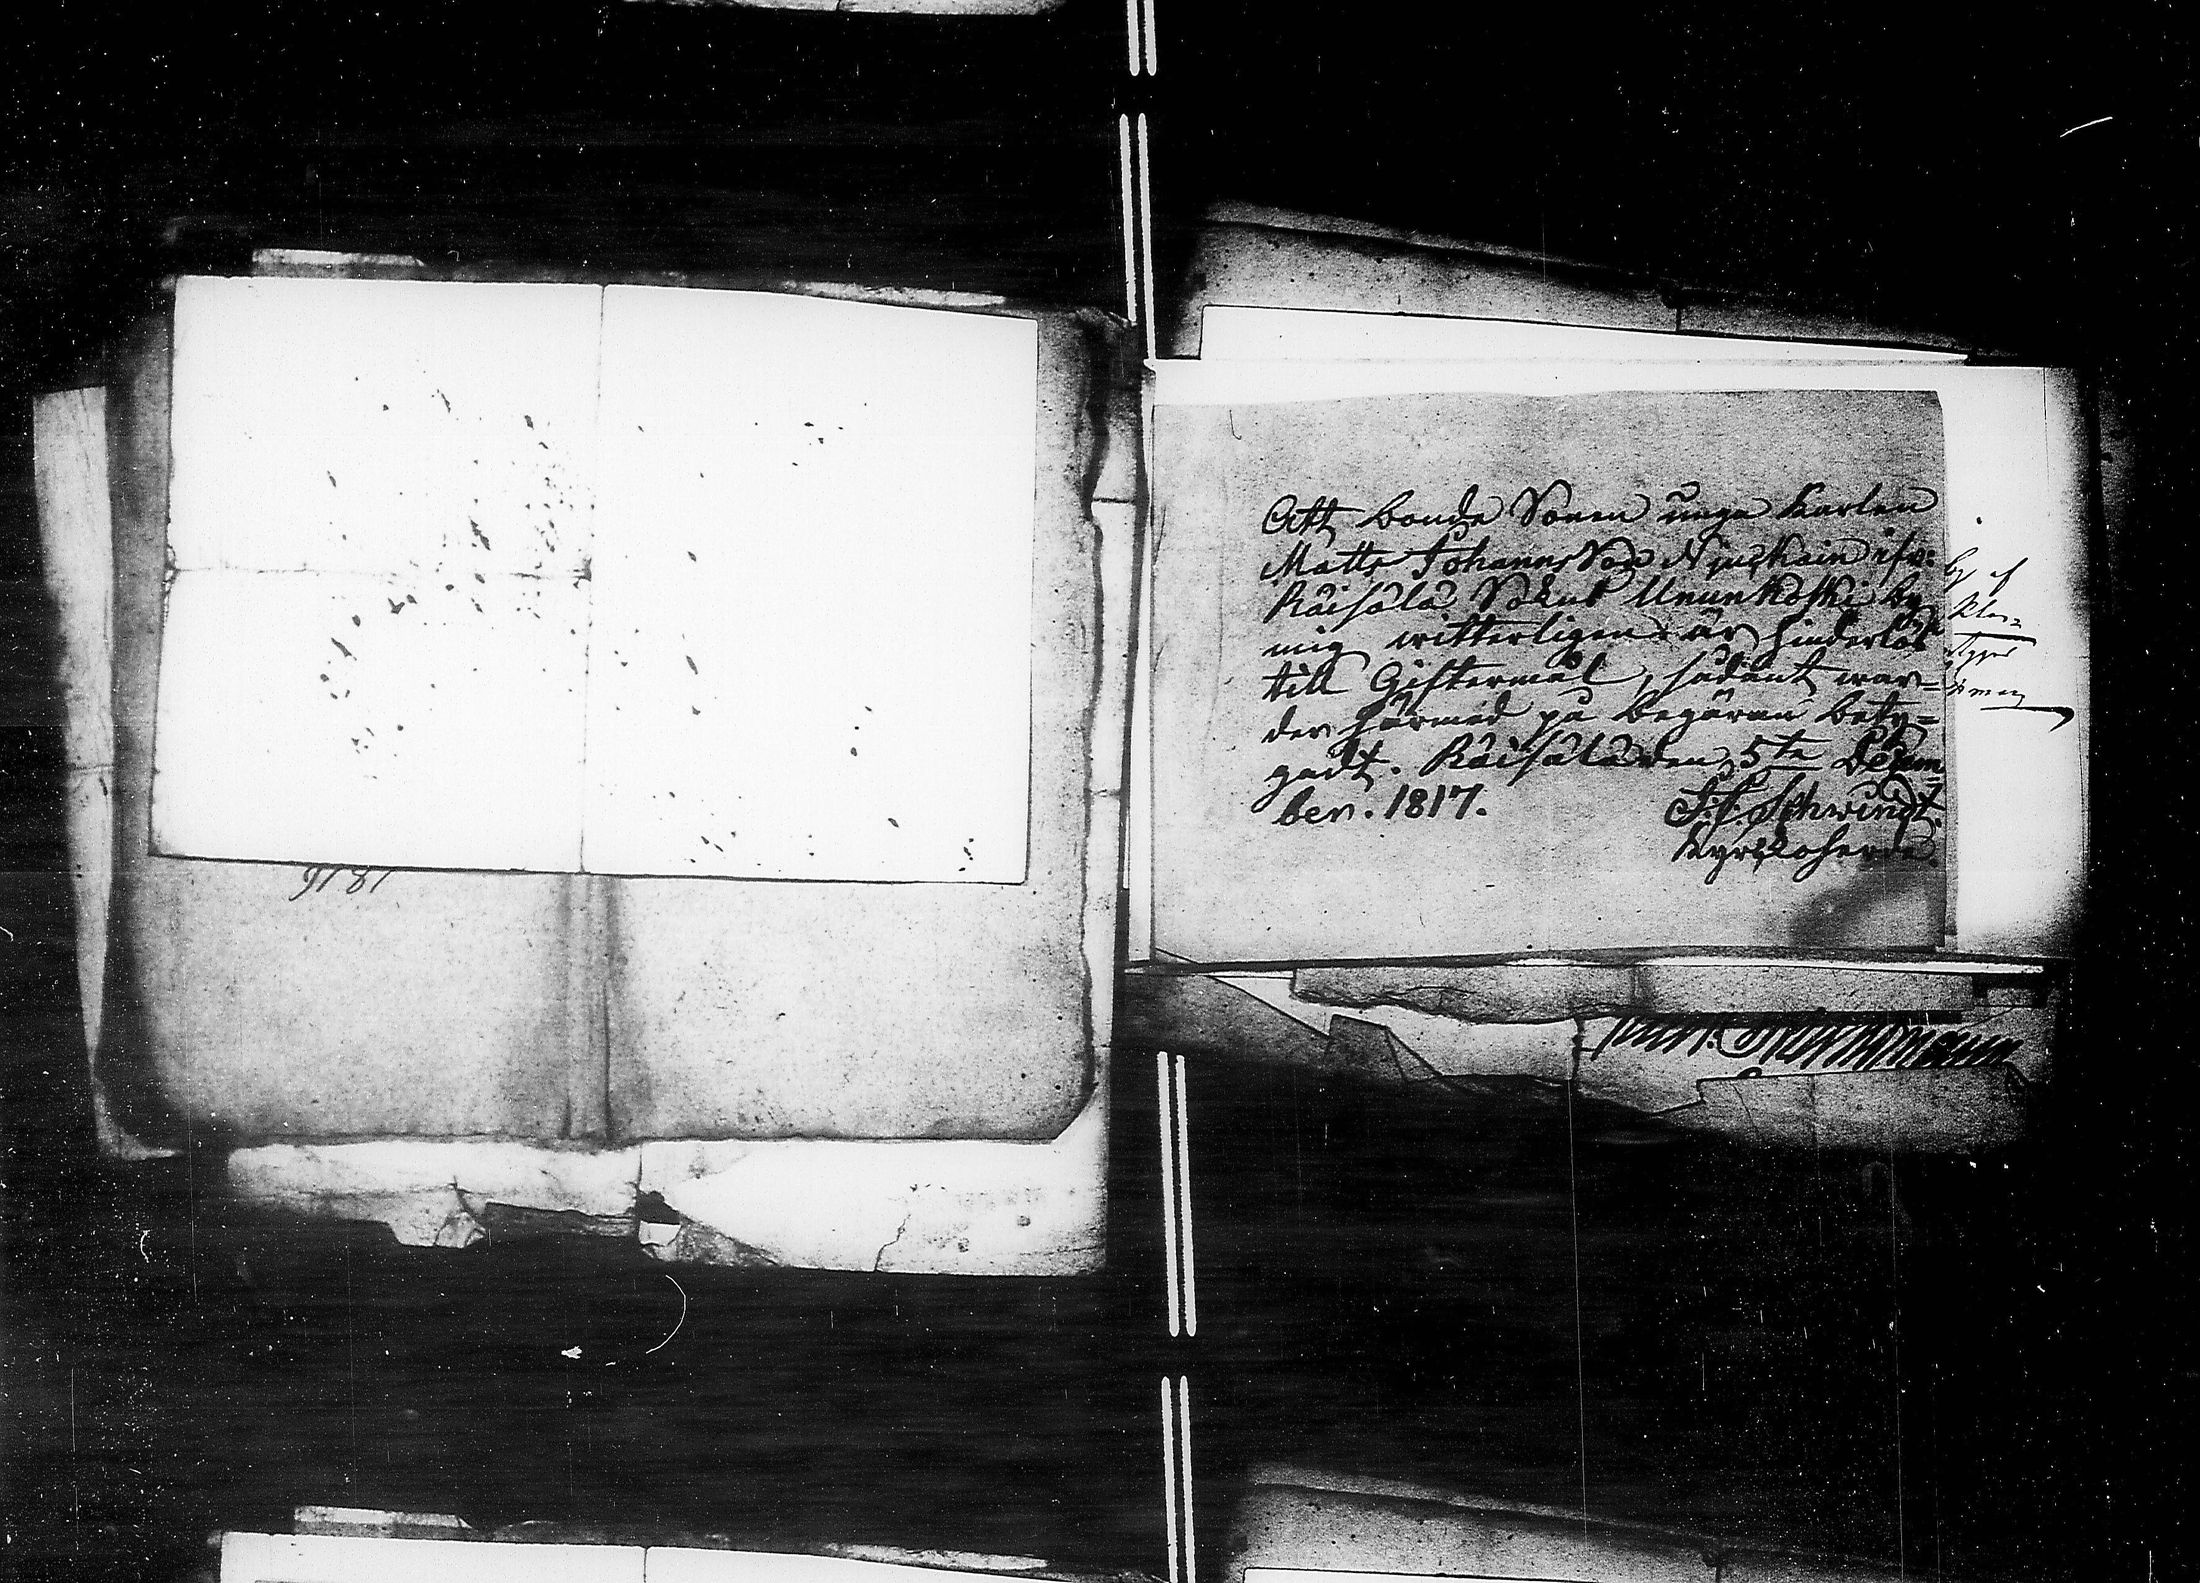 Att bonde Sonen unge Karlen
Matts Johansson Njuskain ifr:
Räisälä Sokns Unnunkoski by
mig witterligen är hinderlös
till Giftermål, sådant war=
der härmed på begäran bety=
gadt. Räisälä den 5te Decem
ber. 1817.
Schwindt.
Kyrckoherde.